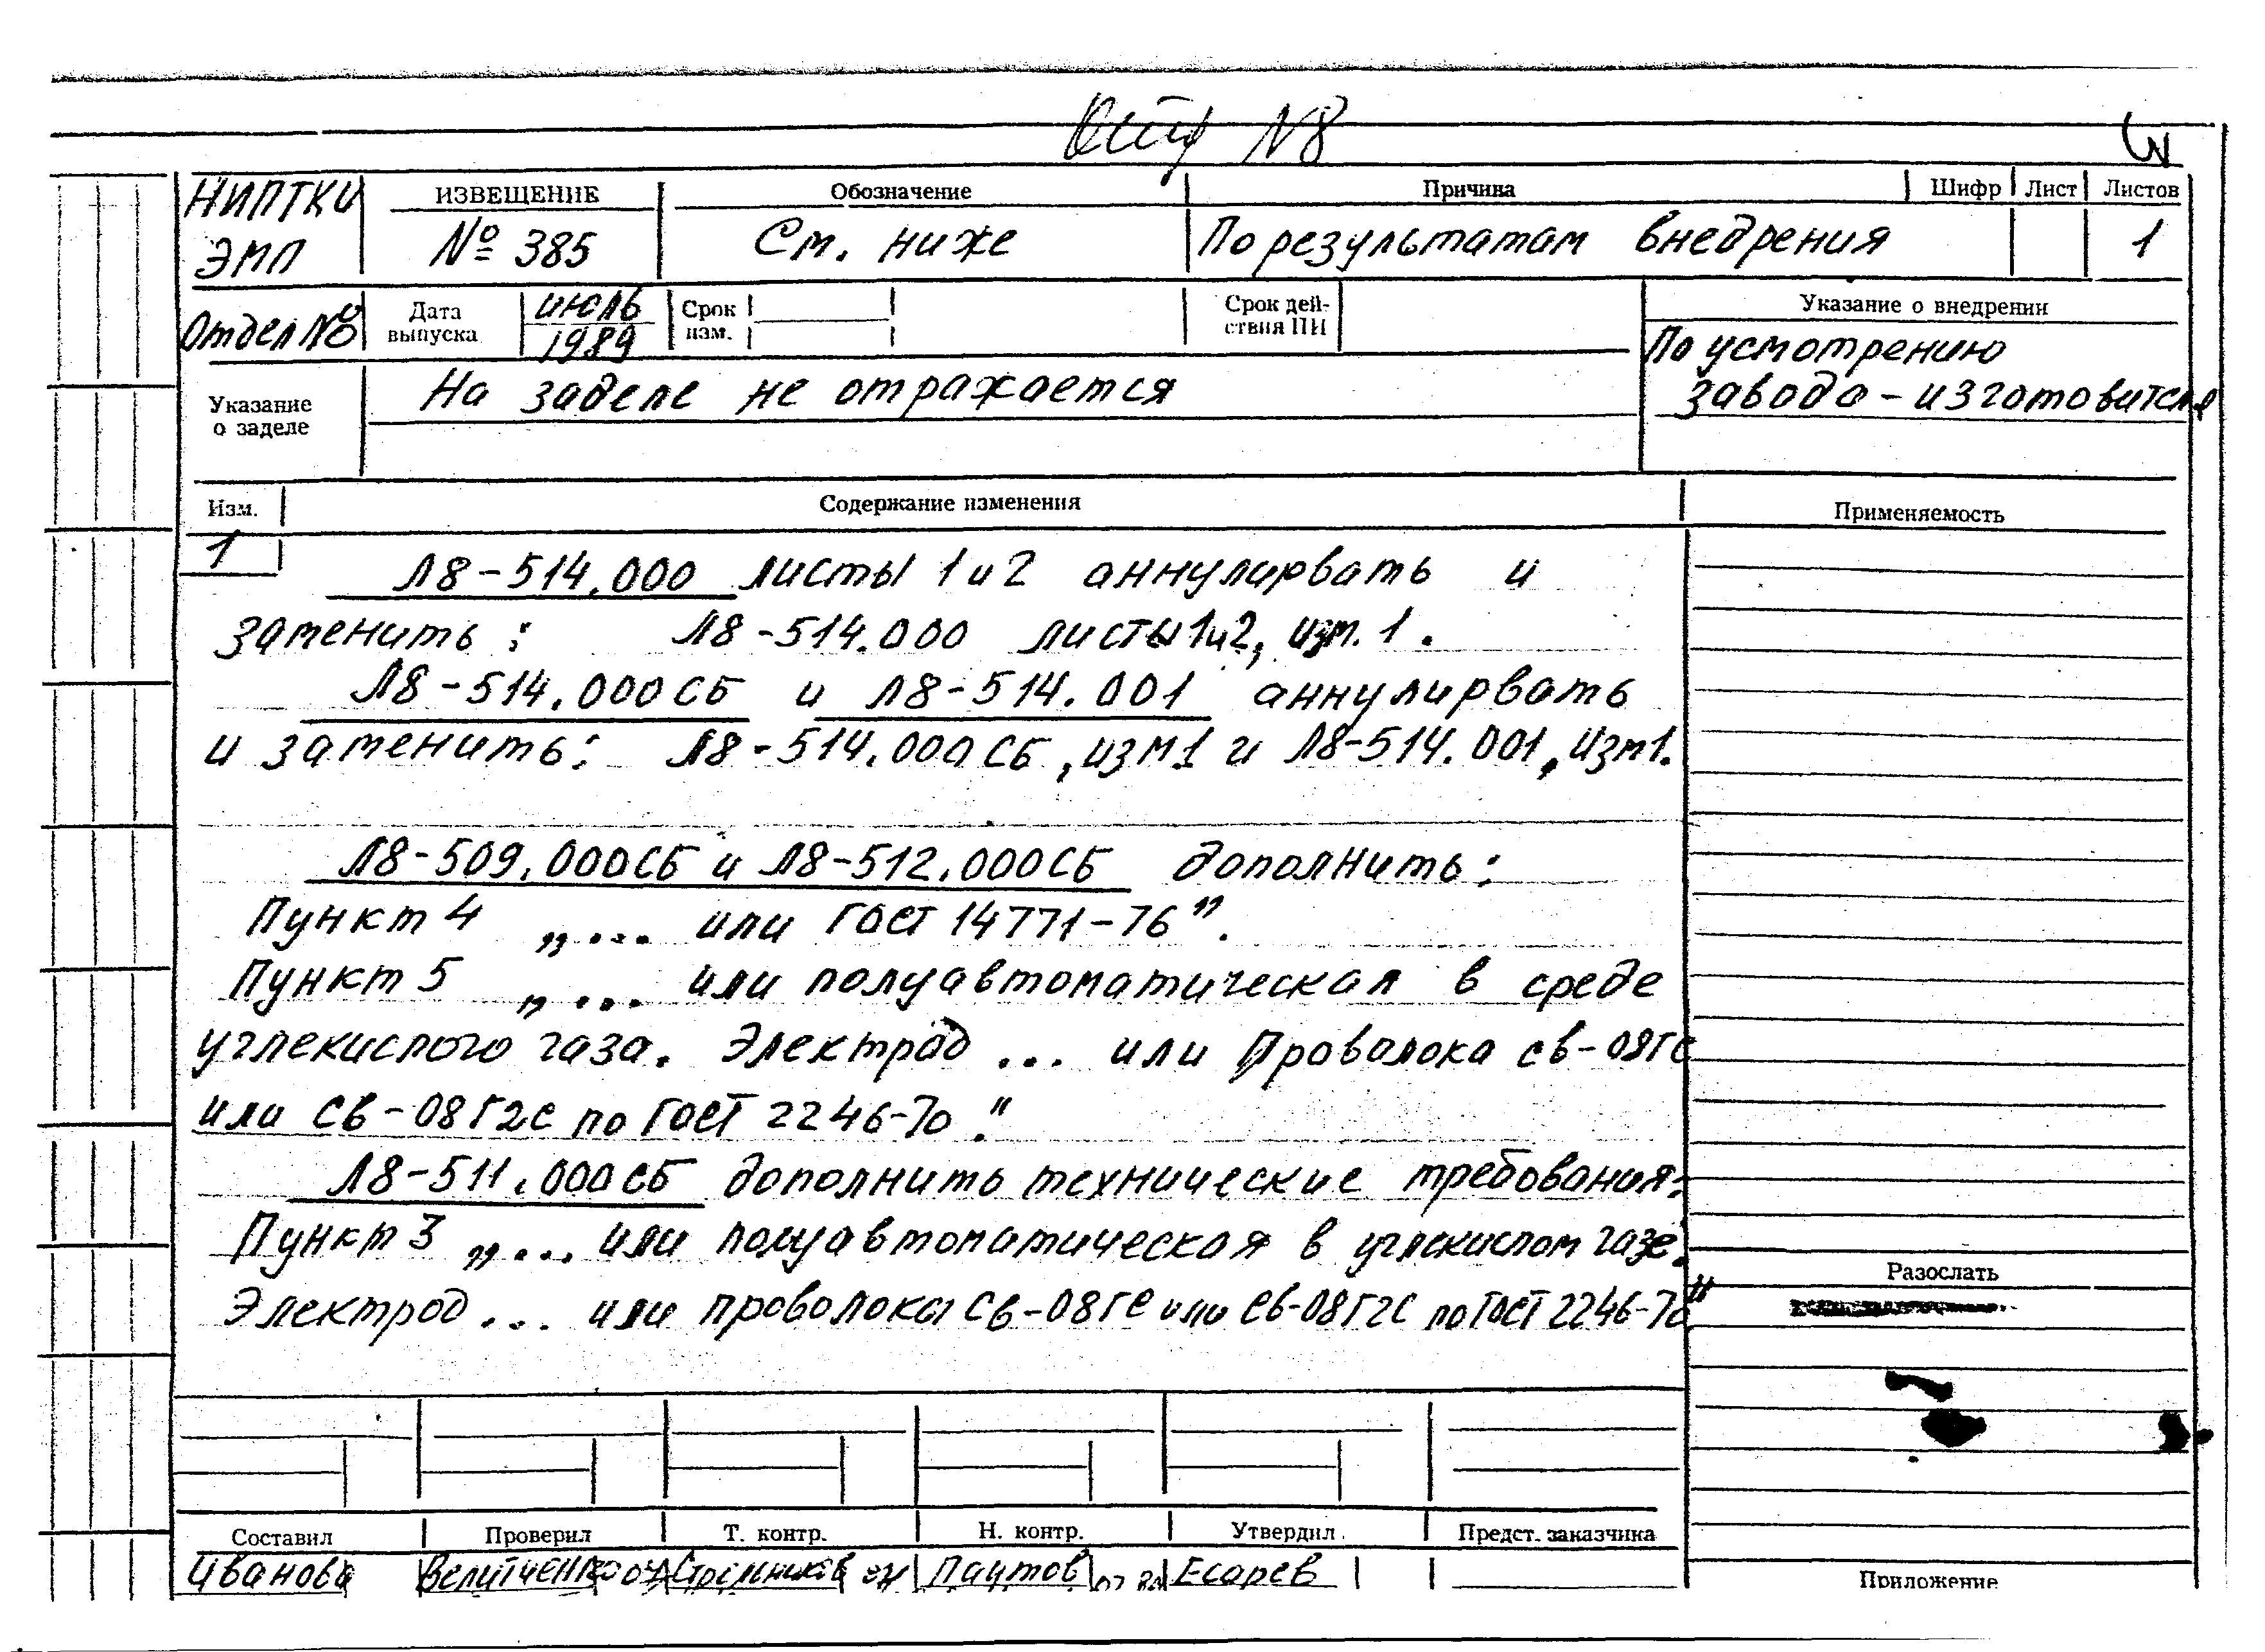 N8
НИПТКИ ИЗВЕЩЕНИЕ Обозначение Причина Шифр Лист Листов
ЭМП № 385 См. ниже По результатам внедрения 1
Отдел №8 Дата выпуска июль 1989 Срок изм. Срок дей-ствия ПИ Указание о внедрении
По усмотрению
завода-изготовителя
Указание о заделе На заделе не отражается
Изм. Содержание изменения Применяемость
1
Л8-514.000 листы 1 и 2 аннулирвать и
заменить: Л8-514.000 листы 1и2, изм. 1.
Л8-514.000СБ и Л8-514.001 аннулирвать
и заменить: Л8-514.000СБ, изм1 и Л8-514.001, изм1.
Л8-509.000СБ и Л8-512.000СБ дополнить:
Пункт 4 „... или ГОСТ 14771-76".
Пункт 5 „... или полуавтоматическая в среде
углекислого газа. Электрод ... или Проволока св-08ГС
или Св-08Г2С по ГОСТ 2246-70."
Л8-511.000СБ дополнить технические требования:
Пункт 3 „... или полуавтоматическая в углекислом газе.
Электрод ... или проволока Св-08ГС или Св-08Г2С по ГОСТ 2246-70"
Разослать
Составил Проверил Т. контр. Н. контр. Утвердил Предст. заказчика
Иванова Стрельников Паутов Есарев
Приложение